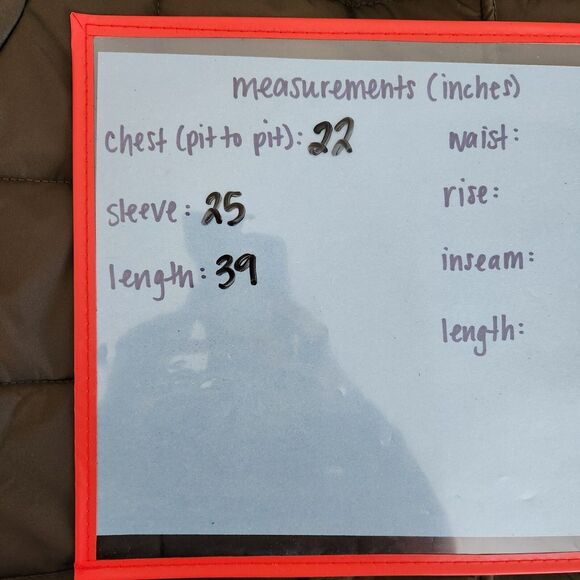 measurements (inches)
chest (pit to pit): 22
sleeve: 25
length: 39
waist:
rise:
inseam:
length: